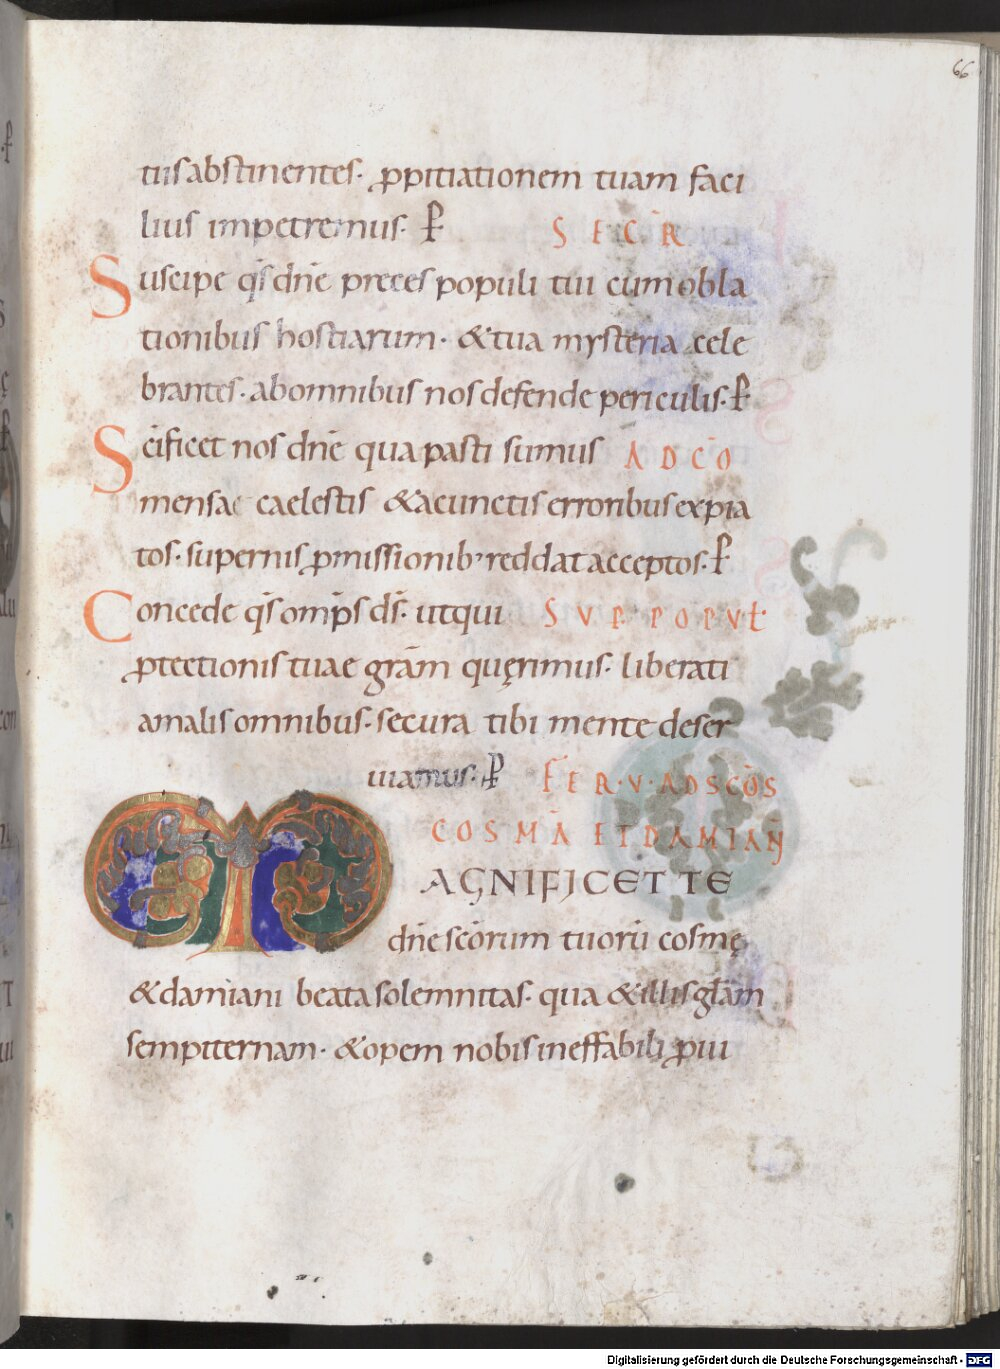 66
tiis abstinentes· ꝓpitiationem tuam faci
lius impetremus· P̱ SECR̄
Suscipe q̄s dn̄e preces populi tui cum obla
tionibus hostiarum· &tua mysteria cele
brantes· abomnibus nos defende periculis· P̱
Sc̄ificet nos dn̄e qua pasti sumus ADCŌ
mensae caelestis &acunctis erroribus expia
tos· supernis ꝓmissionib; reddat acceptos· P̱
Concede q̄s omp̄s ds̄· utqui SUP POPUŁ
ꝓtectionis tuae gr̄am quęrimus· liberati
amalis omnibus· secura tibi mente deser
uiamus· P̱ FER·V·ADSC̄OS
COSMĀ ETDAMIAN̄
MAGNIFICET TE
dn̄e sc̄orum tuorū cosmę
&damiani beata solemnitas· qua &illis gl̄am
sempiternam· &opem nobis ineffabili ꝓui
Digitalisierung gefördert durch die Deutsche Forschungsgemeinschaft - DFG